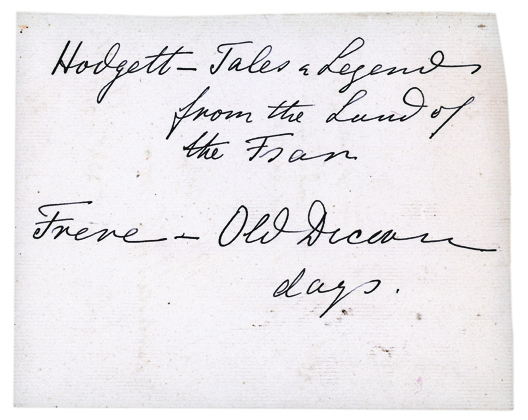 Hodgett - Tales & Legends
from the Land of
the Tsar
Frere - Old Deccan
days.